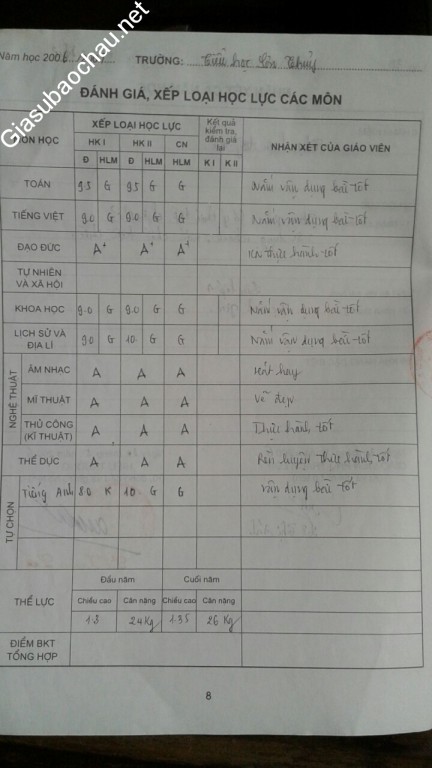 Giasubaochau.net
Năm học 200
TRƯỜNG: Tiểu học Sơn Thủy
ĐÁNH GIÁ, XẾP LOẠI HỌC LỰC CÁC MÔN
MÔN HỌC
XẾP LOẠI HỌC LỰC
Kết quả kiểm tra, đánh giá lại
NHẬN XÉT CỦA GIÁO VIÊN
HK I HK II CN
Đ HLM Đ HLM HLM K I K II
TOÁN 9.5 G 9.5 G G Nắm vận dụng bài tốt
TIẾNG VIỆT 9.0 G 9.0 G G Nắm vận dụng bài tốt
ĐẠO ĐỨC A+ A+ A+ thực hành tốt
TỰ NHIÊN
VÀ XÃ HỘI
KHOA HỌC 9.0 G 9.0 G G Nắm vận dụng bài tốt
LỊCH SỬ VÀ
ĐỊA LÍ 9.0 G 10 G G Nắm vận dụng bài tốt
NGHỆ THUẬT
ÂM NHẠC A A A Hát hay
MĨ THUẬT A A A Vẽ đẹp
THỦ CÔNG
(KĨ THUẬT) A A A Thực hành tốt
THỂ DỤC A A A Rèn luyện thực hành tốt
TỰ CHỌN
Tiếng Anh 8.0 K 10 G G vận dụng bài tốt
THỂ LỰC
Đầu năm Cuối năm
Chiều cao Cân nặng Chiều cao Cân nặng
1.3 24 Kg 1.35 26 Kg
ĐIỂM BKT
TỔNG HỢP
8